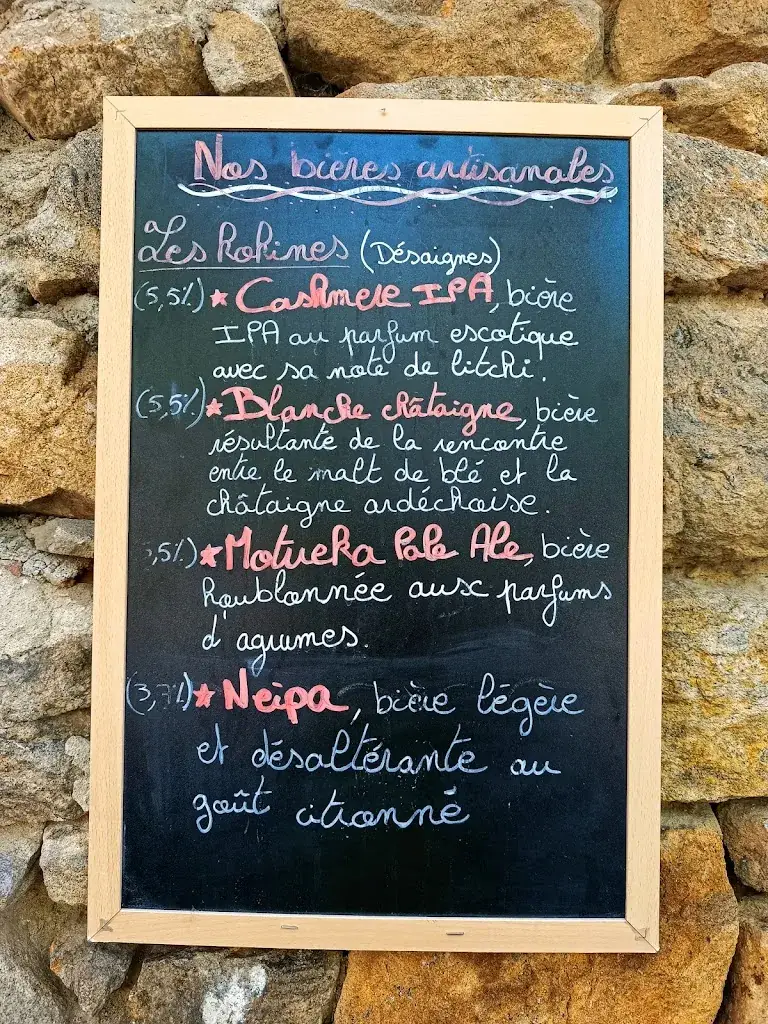 Nos bières artisanales
Les Kokines (Désaignes)
(5,5%) ★ Cashmere IPA, bière
IPA au parfum escotique
avec sa note de litchi.
(5,5%) ★ Blanche châtaigne, bière
résultante de la rencontre
entre le malt de blé et la
châtaigne ardéchoise.
,5%) ★ Motueka Pale Ale, bière
houblonnée aux parfums
d'agrumes.
(3,7%) ★ Neipa, bière légère
et désaltérante au
goût citronné